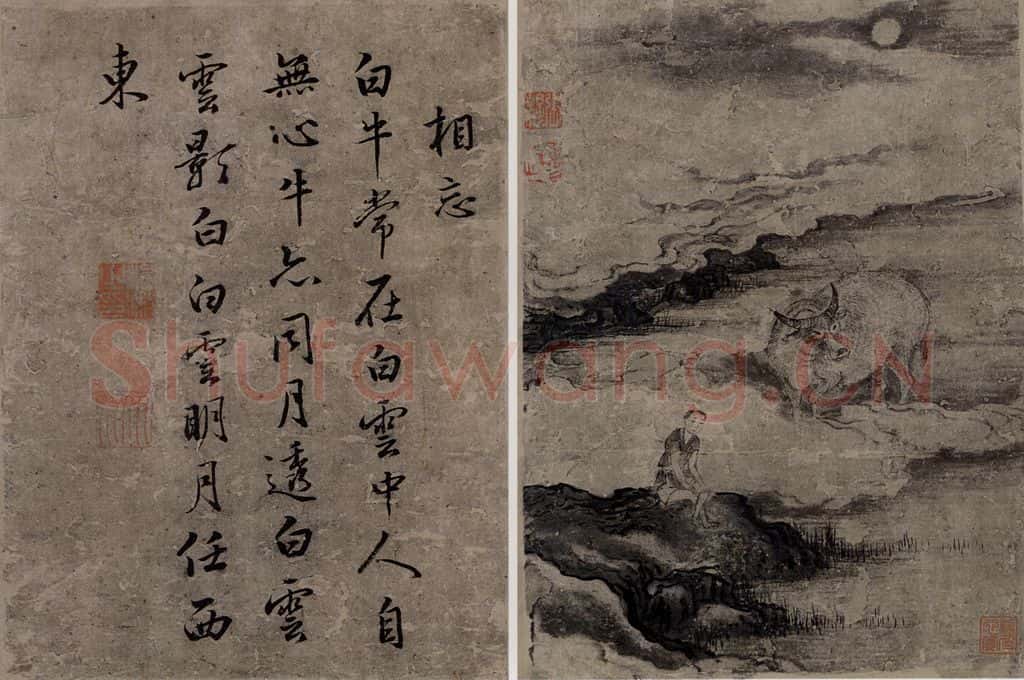 相忘
白牛常在白雲中人自
無心牛亦同月透白雲
雲影白白雲明月任西
東
Shufawang.CN